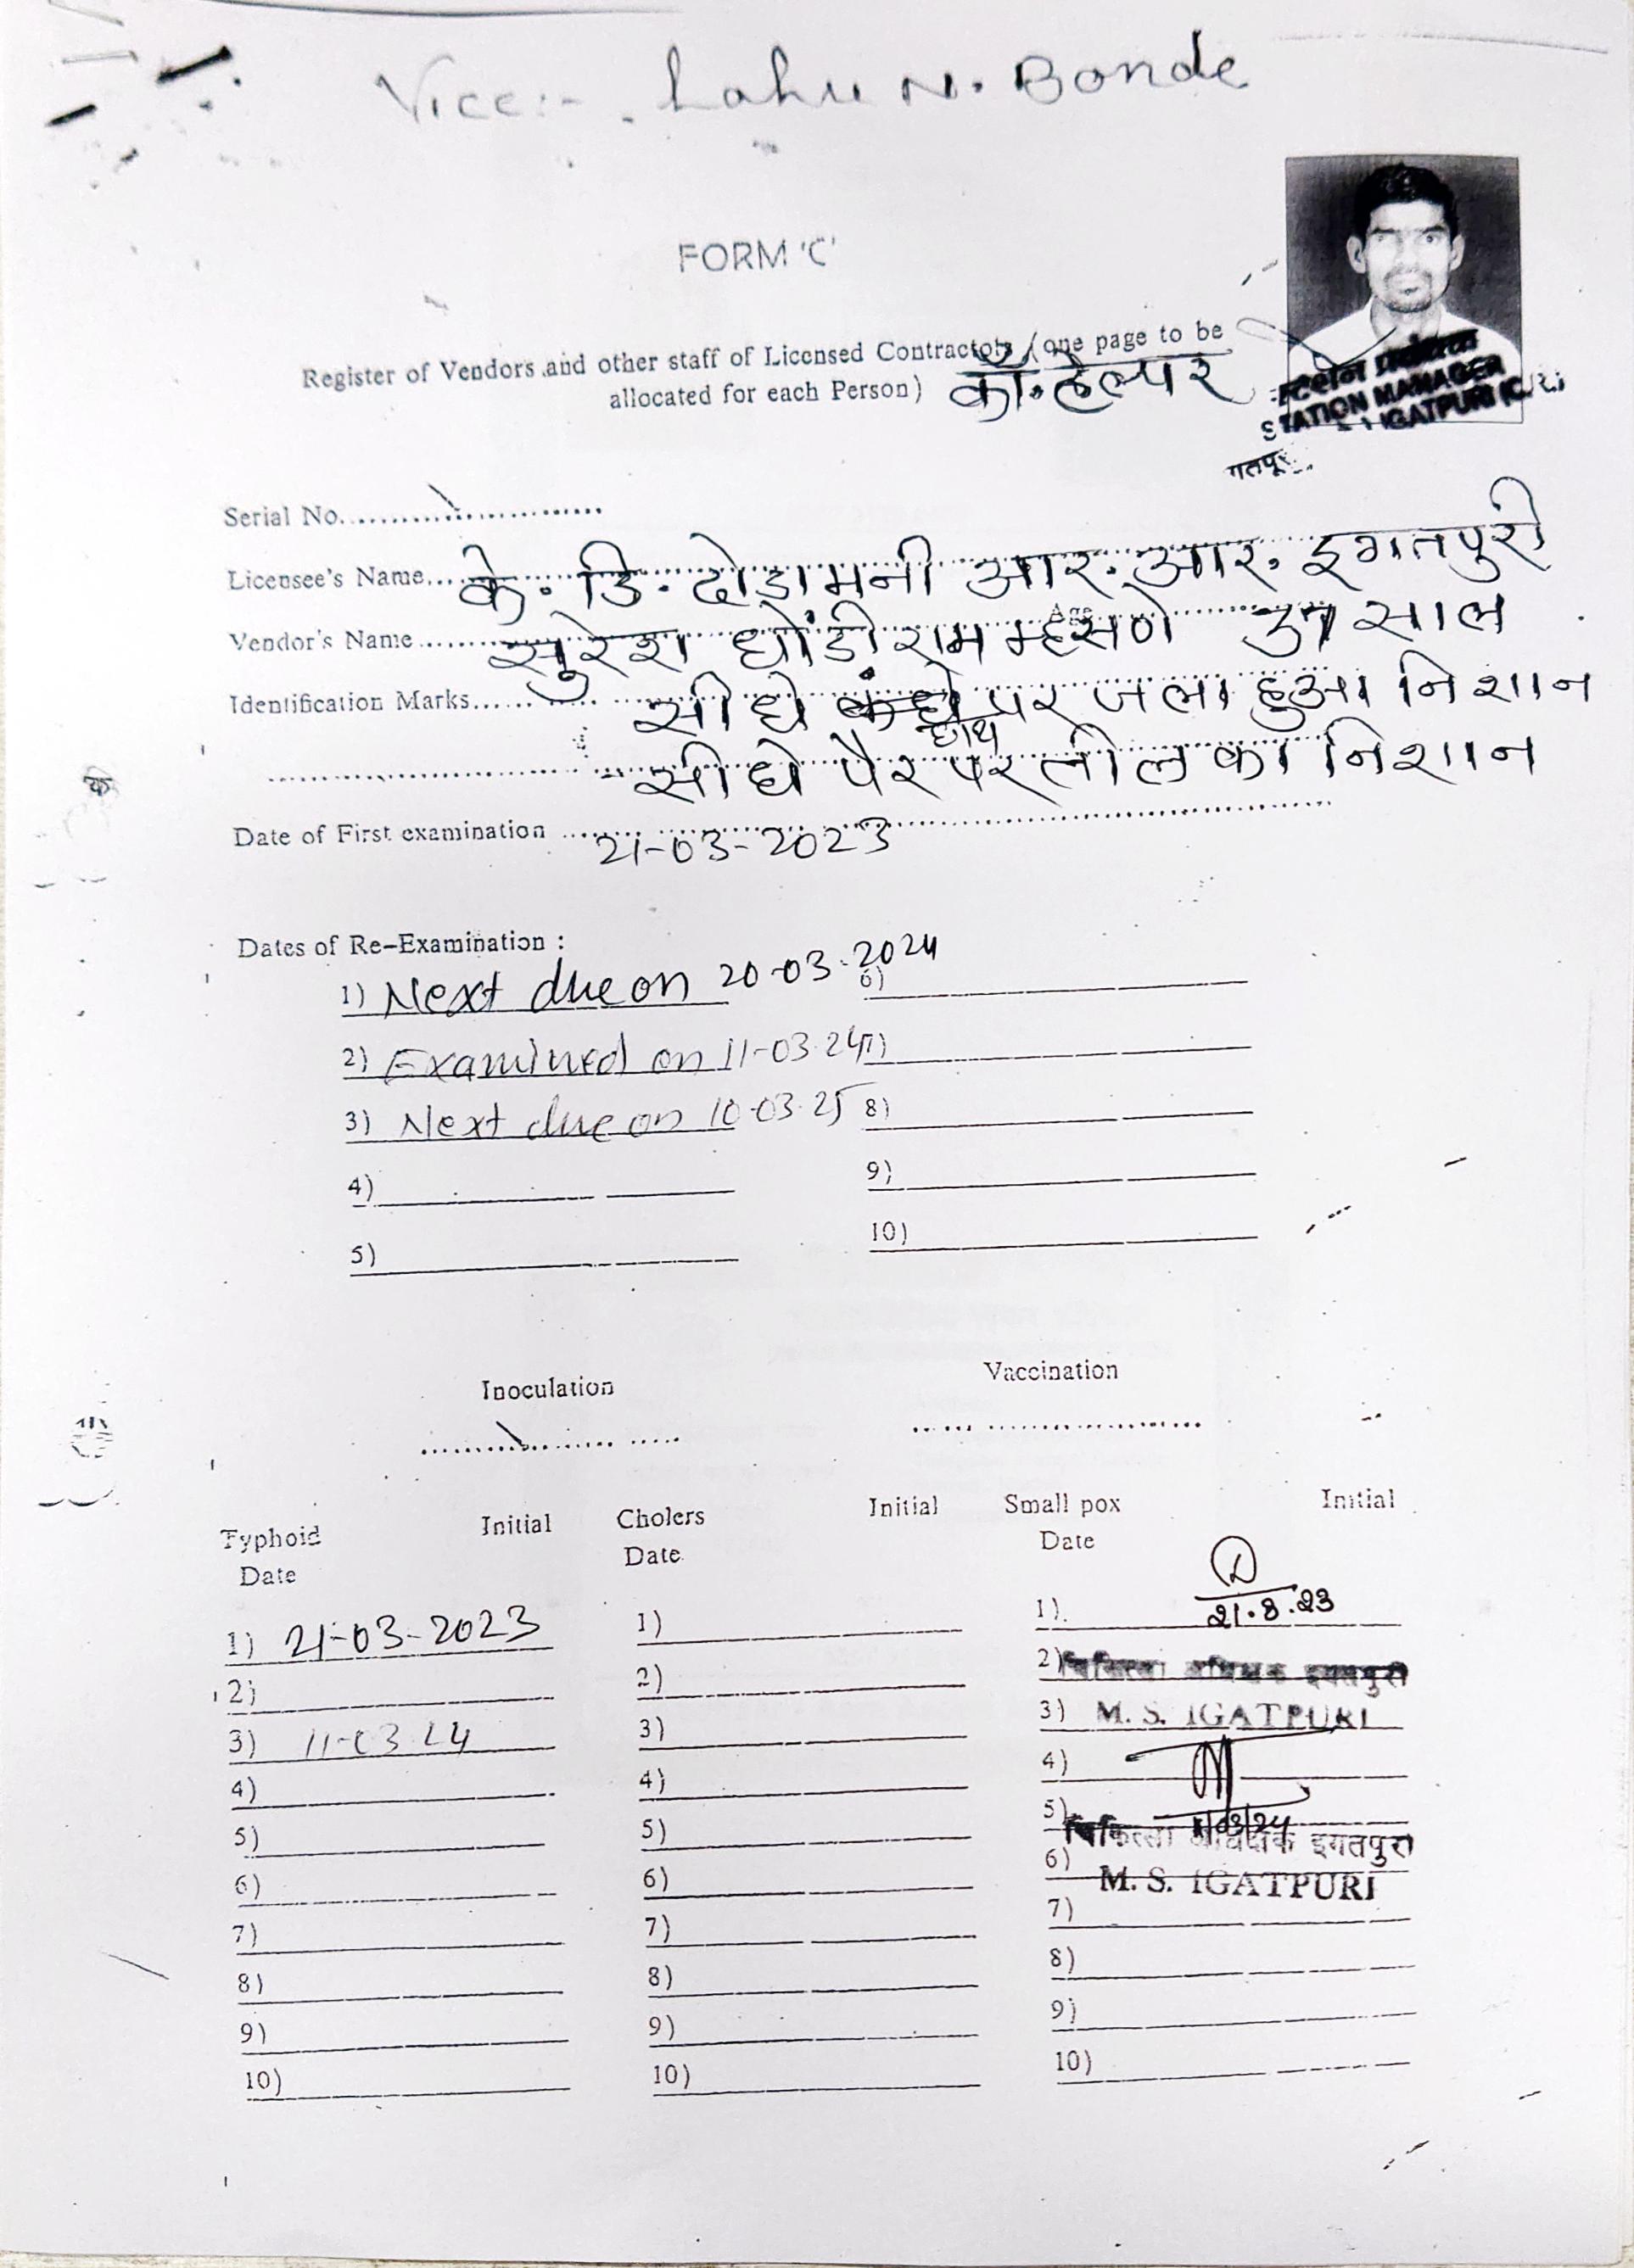 Vice:- Lahu N. Bonde
FORM 'C'
Register of Vendors and other staff of Licensed Contractots (one page to be
allocated for each Person) कॉ. हेल्पर
स्टेशन प्रबंधक
STATION MANAGER
IGATPURI (C.R.)
गतपू
Serial No.
Licensee's Name... के. डि. दोडामनी आर. आर. इगतपुरी
Vendor's Name सुरेश धोंडीराम म्हसणे Age 37 साल
Identification Marks सीधे कंधे हाथ पर जला हुआ निशान
सीधे पैर पर तील का निशान
Date of First examination 21-03-2023
Dates of Re-Examination :
1) Next due on 20-03-2024 6)
2) Examined on 11-03-24 7)
3) Next due on 10-03-25 8)
4) 9)
5) 10)
Inoculation Vaccination
Typhoid Initial Cholers Initial Small pox Initial
Date Date Date
1) 21-03-2023 1) 1) 21.8.23
2) 2) 2) चिकित्सा अधिक्षक इगतपुरी
3) 11-03-24 3) 3) M. S. IGATPURI
4) 4) 4)
5) 5) 5) 11/03/24
चिकित्सा अधिक्षक इगतपुरी
6) 6) 6) M. S. IGATPURI
7) 7) 7)
8) 8) 8)
9) 9) 9)
10) 10) 10)